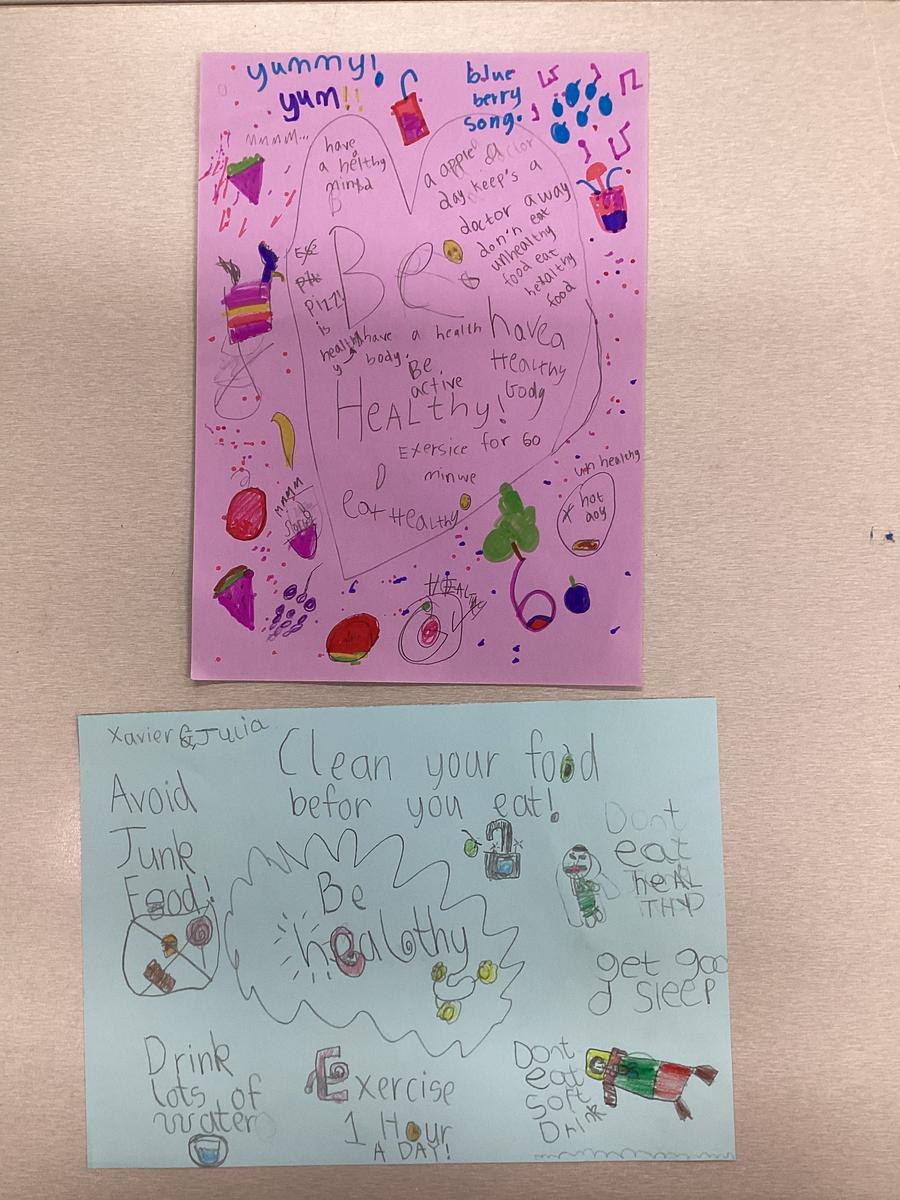 yummy!
yum!!
blue
berry
song.
mmmm...
have
a helthy
a apple a
day keep's a
doctor away
don'n eat
unhealthy
food eat
healthy
food
Be
Pizz!
is
health
y
have a health
body.
Be
active
have a
Healthy
body
HeALthy!
Exersice for 60
minwe
eat HeALthy
MMMM
un healthy
x hot
Xavier & Julia
Clean your food
befor you eat!
Avoid
Junk
Food!
Be
healthy
Dont
eat
heAL
THY
get goo
d sleep
Drink
lots of
water
Exercise
1 Hour
A DAY!
Dont
eat
soft
Drink